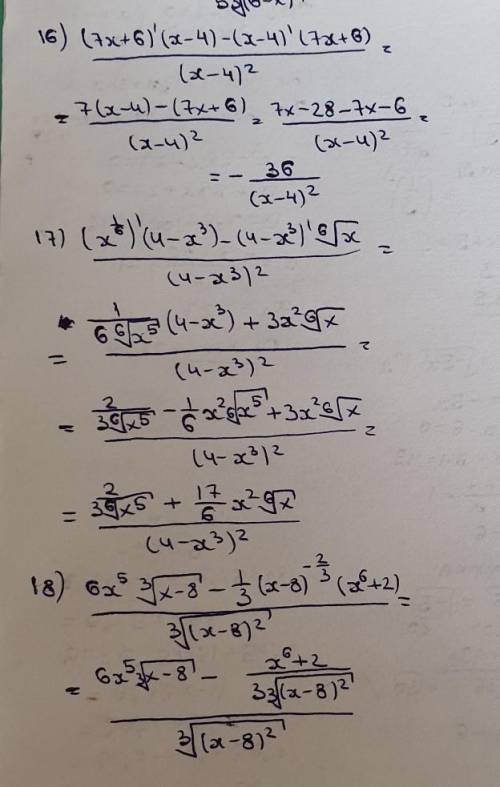 16) ((7x+6)'(x-4)-(x-4)'(7x+6))/((x-4)²) =
= (7(x-4)-(7x+6))/((x-4)²) = (7x-28-7x-6)/((x-4)²) =
= - 36/((x-4)²)
17) ((x^(1/6))'(4-x³)-(4-x³)' ⁶√x)/((4-x³)²) =
= (1/(6 ⁶√x⁵) (4-x³) + 3x² ⁶√x)/((4-x³)²) =
= (2/(3 ⁶√x⁵) - 1/6 x² ⁶√x⁵ + 3x² ⁶√x)/((4-x³)²) =
= (2/(3 ⁶√x⁵) + 17/6 x² ⁶√x)/((4-x³)²)
18) (6x⁵ ³√(x-8) - 1/3 (x-8)^(-2/3) (x⁶+2))/(³√((x-8)²)) =
= (6x⁵ ³√(x-8) - (x⁶+2)/(3 ³√((x-8)²)))/(³√((x-8)²))